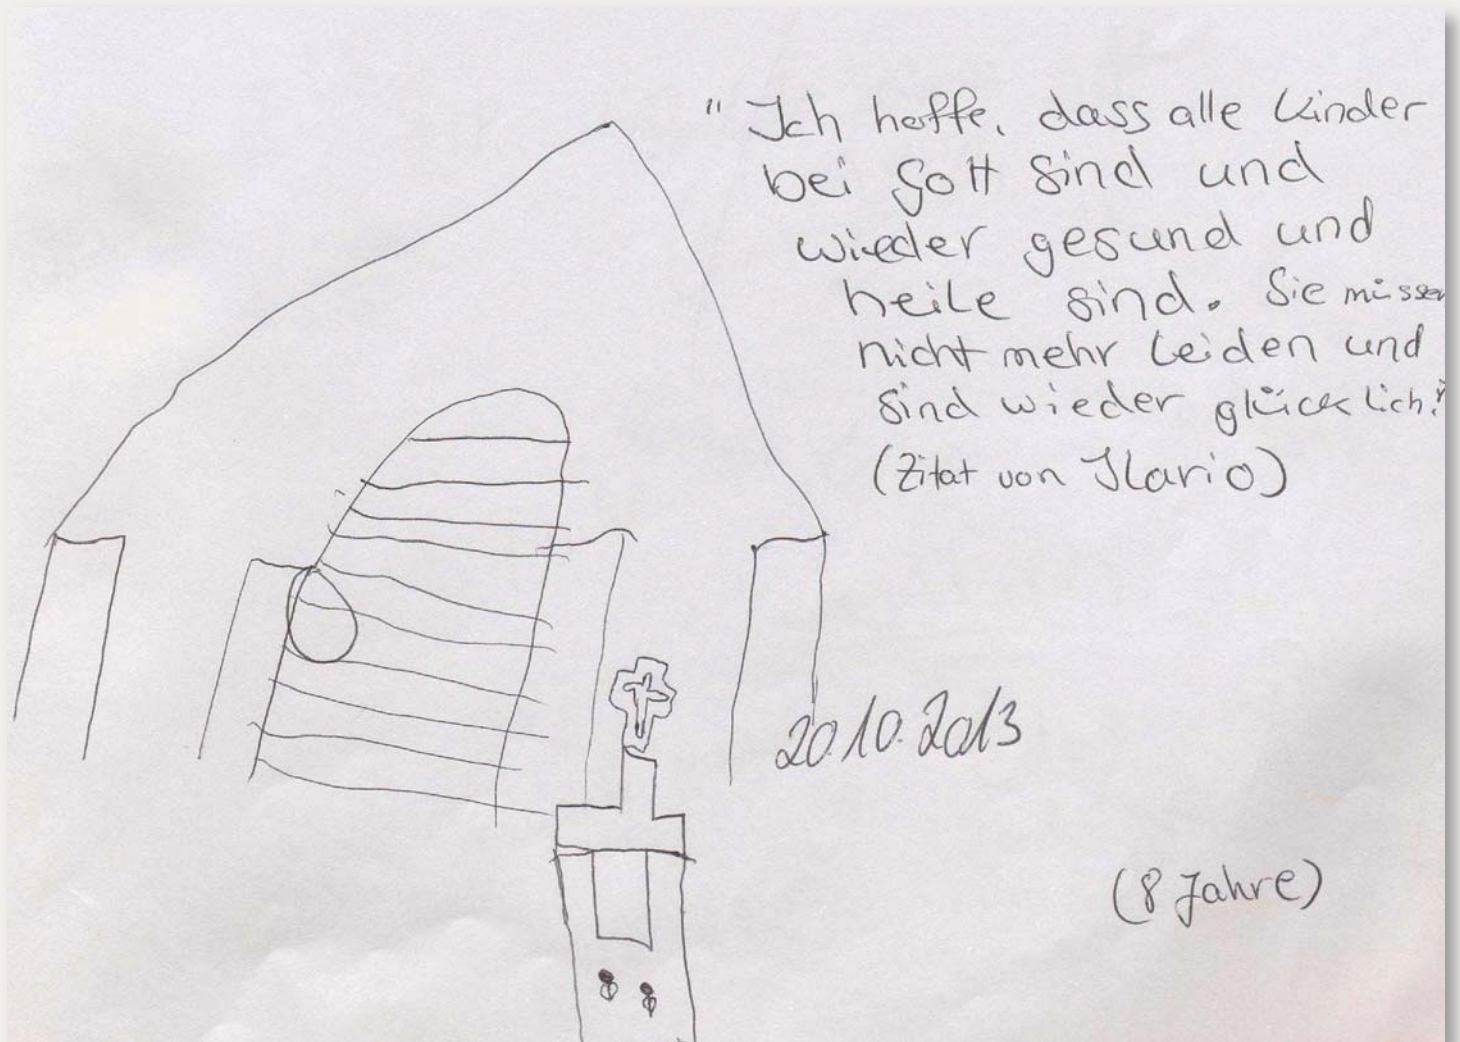 "Ich hoffe, dass alle Kinder
bei Gott sind und
wieder gesund und
heile sind. Sie müssen
nicht mehr leiden und
sind wieder glücklich."
(Zitat von Ilario)
20.10.2013
(8 Jahre)